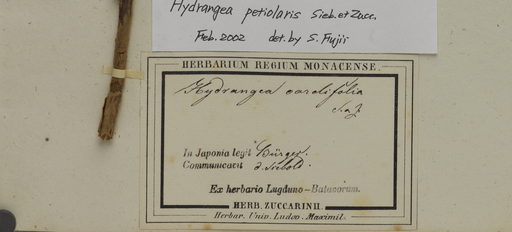 Hydrangea petiolaris Sieb. et Zucc.
Feb. 2002 det. by S. Fujii
HERBARIUM REGIUM MONACENSE.
Hydrangea cordifolia
S. a Z.
In Japonia legit Bürger.
Communicavit d. Siebold.
Ex herbario Lugduno-Batavorum.
HERB. ZUCCARINII.
Herbar. Univ. Ludov. Maximil.